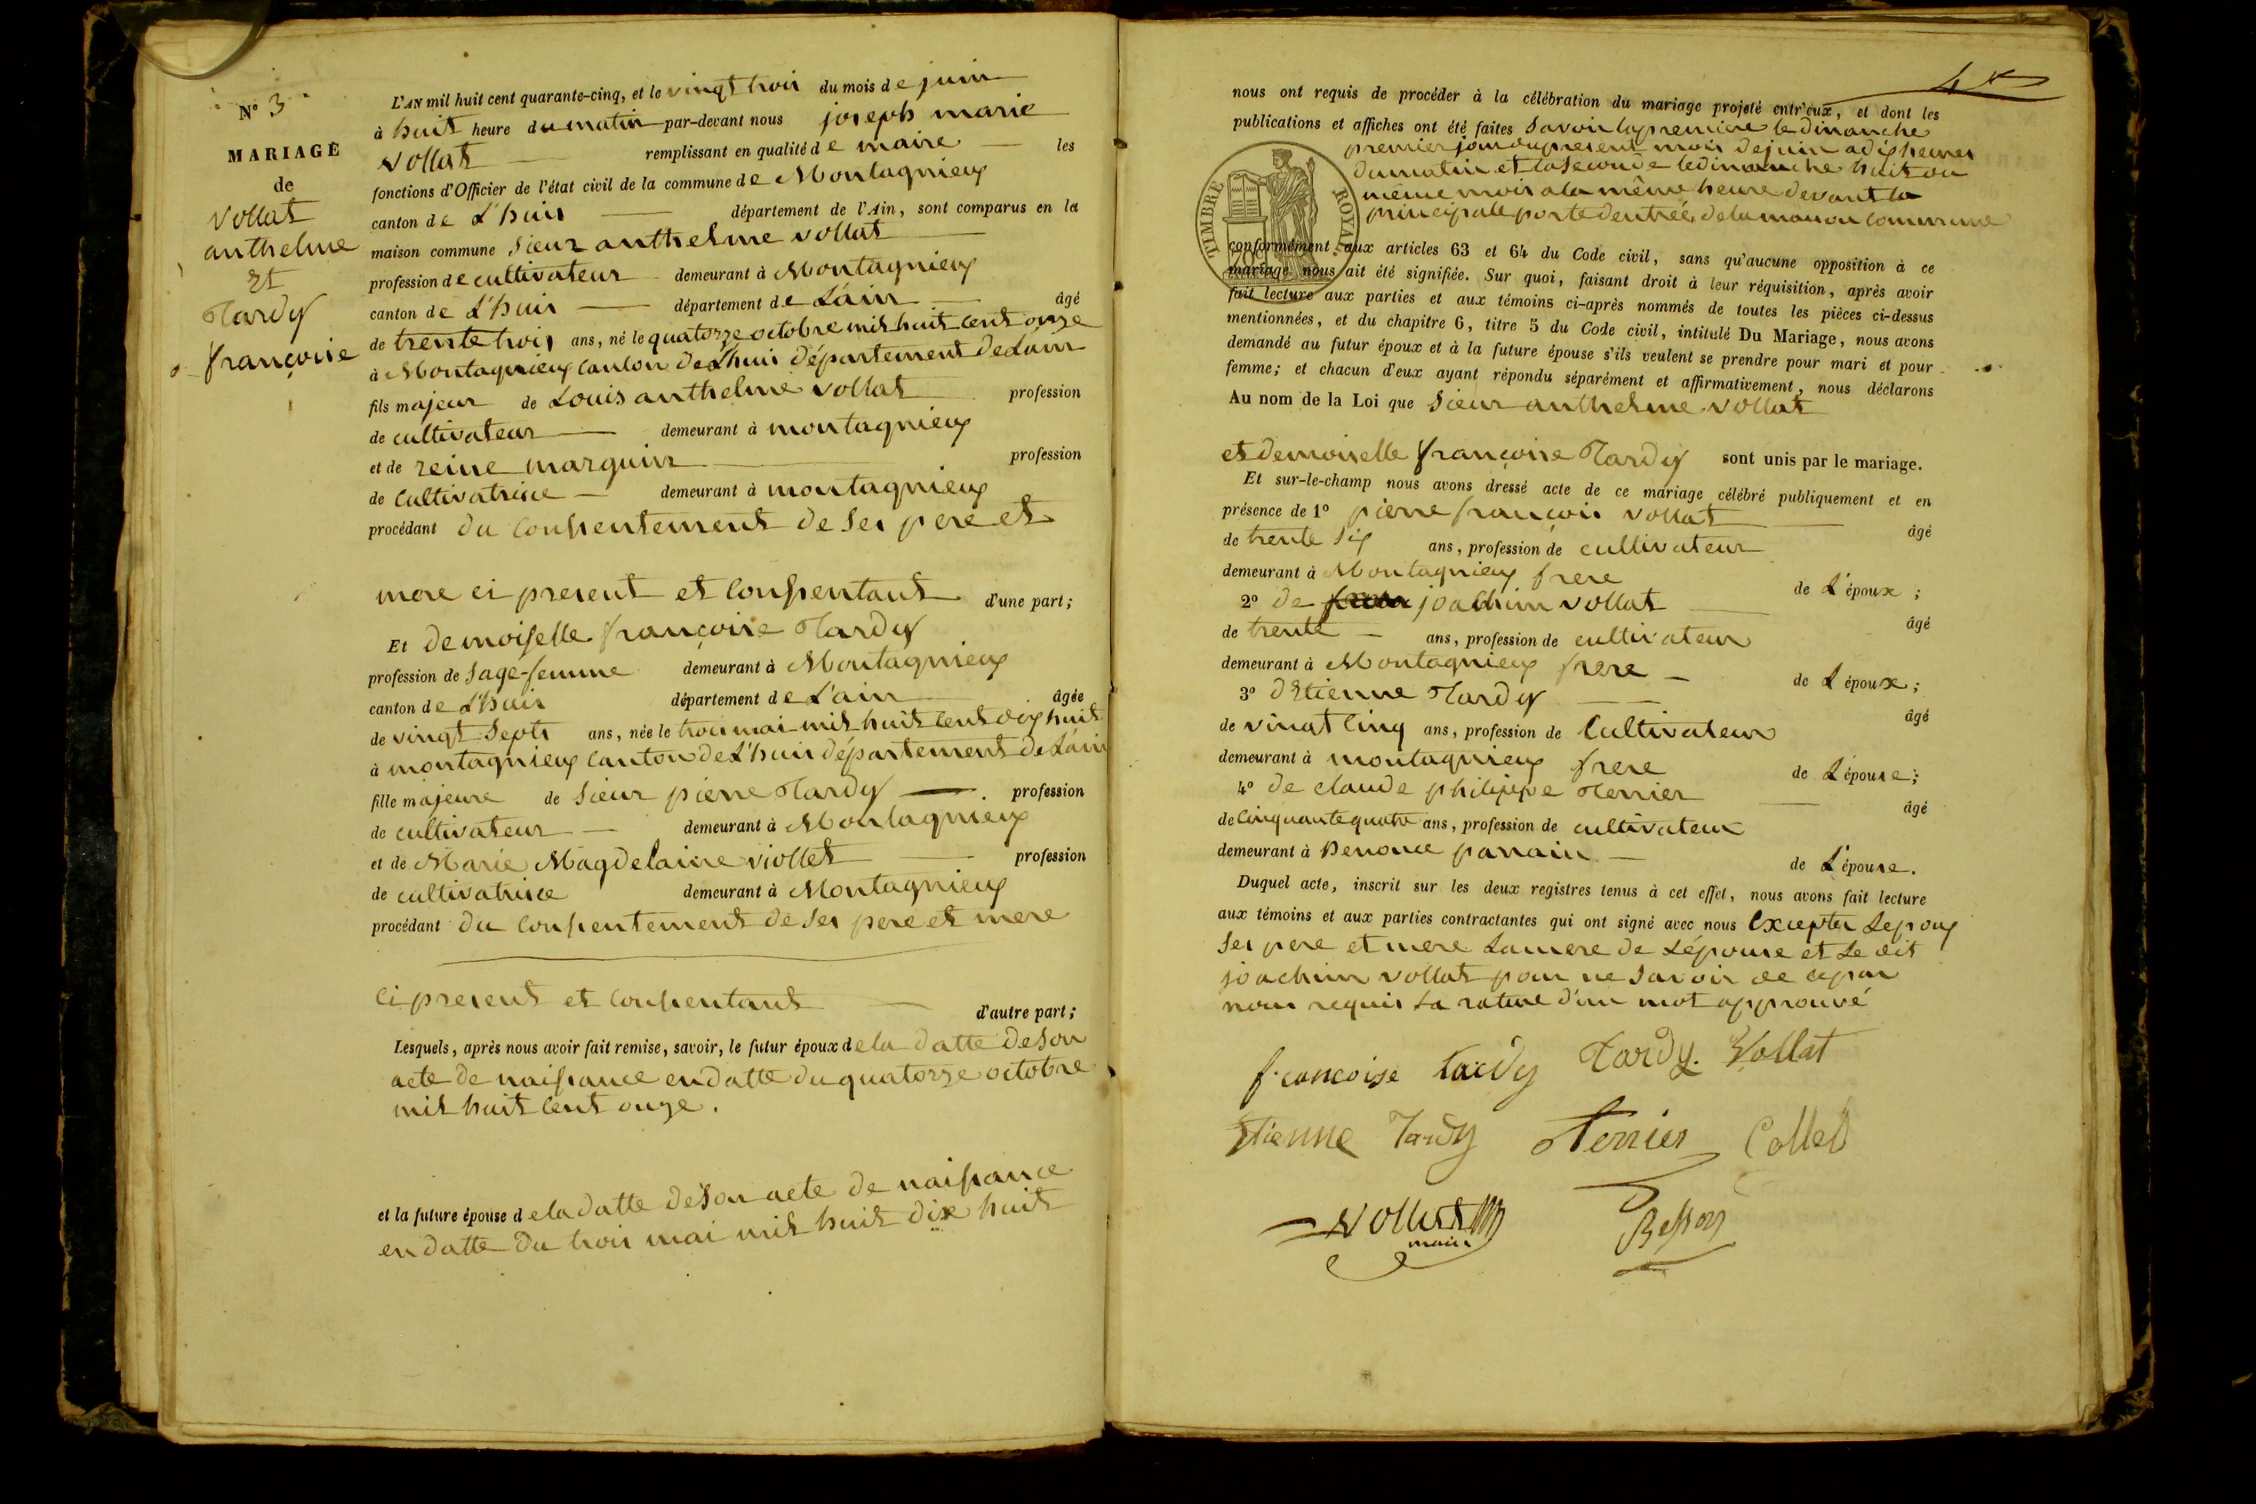 N° 3
MARIAGE
de
Vollat
anthelme
Et
Tardy
françoise
L'AN mil huit cent quarante-cinq, et le vingt trois du mois de juin
à huit heure du matin par-devant nous joseph marie
Vollat remplissant en qualité de maire les
fonctions d'Officier de l'état civil de la commune de Montagnieux
canton de L'huis département de l'Ain, sont comparus en la
maison commune Sieur anthelme vollat
profession de cultivateur demeurant à Montagnieux
canton de L'huis département de L'ain âgé
de trente trois ans, né le quatorze octobre mil huit cent onze
à Montagnieux canton de L'huis département de Lain
fils majeur de Louis anthelme vollat profession
de cultivateur demeurant à montagnieux
et de reine marguin profession
de cultivatrice demeurant à montagnieux
procédant du consentement de ses pere et
mere ci present et consentant d'une part;
Et demoiselle françoise Tardy
profession de Sage-femme demeurant à Montagnieux
canton de L'huis département de L'ain âgée
de vingt Septs ans, née le trois mai mil huit cent dix huit
à montagnieux canton de L'huis département de L'ain
fille majeure de Sieur pierre Tardy profession
de cultivateur demeurant à Montagnieux
et de Marie Magdelaine viollet profession
de cultivatrice demeurant à Montagnieux
procédant du consentement de ses pere et mere
ci present et consentant d'autre part;
Lesquels, après nous avoir fait remise, savoir, le futur époux de la datte de son
acte de naissance en datte du quatorze octobre
mil huit cent onze.
et la future épouse de la datte de son acte de naissance
en datte du trois mai mil huit dix huit
nous ont requis de procéder à la célébration du mariage projeté entr'eux, et dont les
publications et affiches ont été faites Savoir la premiere le dimanche
premier jour du present mois de juin a dix heures
du matin et la Seconde le dimanche huit du
même mois a la même heure devant la
principale porte dentrée de la maison commune
TIMBRE ROYAL
conformément aux articles 63 et 64 du Code civil, sans qu'aucune opposition à ce
mariage nous ait été signifiée. Sur quoi, faisant droit à leur réquisition, après avoir
fait lecture aux parties et aux témoins ci-après nommés de toutes les pièces ci-dessus
mentionnées, et du chapitre 6, titre 5 du Code civil, intitulé Du Mariage, nous avons
demandé au futur époux et à la future épouse s'ils veulent se prendre pour mari et pour
femme; et chacun d'eux ayant répondu séparément et affirmativement, nous déclarons
Au nom de la Loi que Sieur anthelme vollat
et demoiselle françoise Tardy sont unis par le mariage.
Et sur-le-champ nous avons dressé acte de ce mariage célébré publiquement et en
présence de 1° pierre françois vollat âgé
de trente Six ans, profession de cultivateur
demeurant à Montagnieux frere de L'époux;
2° de joachim vollat âgé
de trente ans, profession de cultivateur
demeurant à Montagnieux frere de L'époux;
3° d'Etienne Tardy âgé
de vingt cinq ans, profession de Cultivateur
demeurant à montagnieux frere de L'épouse;
4° de claude philippe Terrier âgé
de cinquante quatre ans, profession de cultivateur
demeurant à Benonce parrain de L'épouse.
Duquel acte, inscrit sur les deux registres tenus à cet effet, nous avons fait lecture
aux témoins et aux parties contractantes qui ont signé avec nous Excepter Lepoux
Ses pere et mere La mere de L'épouse et Le dit
joachim vollat pour ne Savoir de ce par
nous requis La rature d'un mot approuvé
francoise tardy Tardy. Vollat
Etienne Tardy Terrier Collet
Vollat
maire
Besson